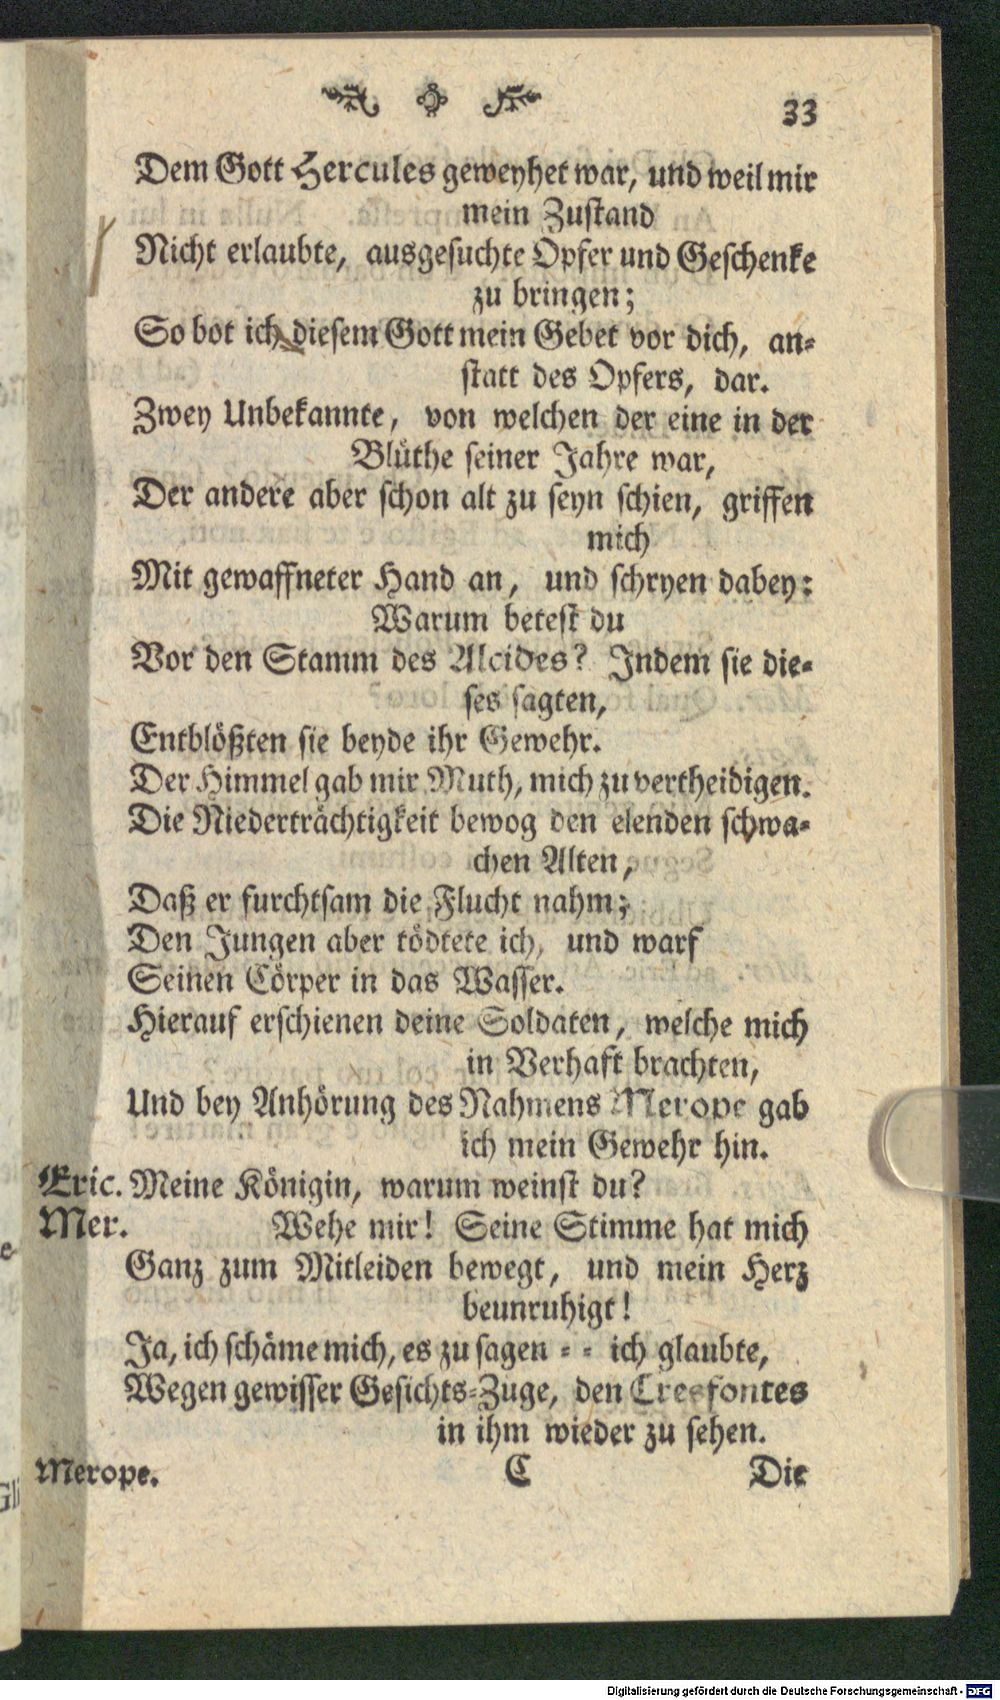 33
Dem Gott Hercules geweyhet war, und weil mir
mein Zustand
Nicht erlaubte, ausgesuchte Opfer und Geschenke
zu bringen;
So bot ich diesem Gott mein Gebet vor dich, an-
statt des Opfers, dar.
Zwey Unbekannte, von welchen der eine in der
Blüthe seiner Jahre war,
Der andere aber schon alt zu seyn schien, griffen
mich
Mit gewaffneter Hand an, und schryen dabey:
Warum betest du
Vor den Stamm des Alcides? Indem sie die-
ses sagten,
Entblößten sie beyde ihr Gewehr.
Der Himmel gab mir Muth, mich zu vertheidigen.
Die Niederträchtigkeit bewog den elenden schwa-
chen Alten,
Daß er furchtsam die Flucht nahm;
Den Jungen aber tödtete ich, und warf
Seinen Cörper in das Wasser.
Hierauf erschienen deine Soldaten, welche mich
in Verhaft brachten,
Und bey Anhörung des Nahmens Merope gab
ich mein Gewehr hin.
Eric. Meine Königin, warum weinst du?
Mer. Wehe mir! Seine Stimme hat mich
Ganz zum Mitleiden bewegt, und mein Herz
beunruhigt!
Ja, ich schäme mich, es zu sagen - - ich glaubte,
Wegen gewisser Gesichts-Zuge, den Cresfontes
in ihm wieder zu sehen.
Merope. C Die
Digitalisierung gefördert durch die Deutsche Forschungsgemeinschaft - DFG